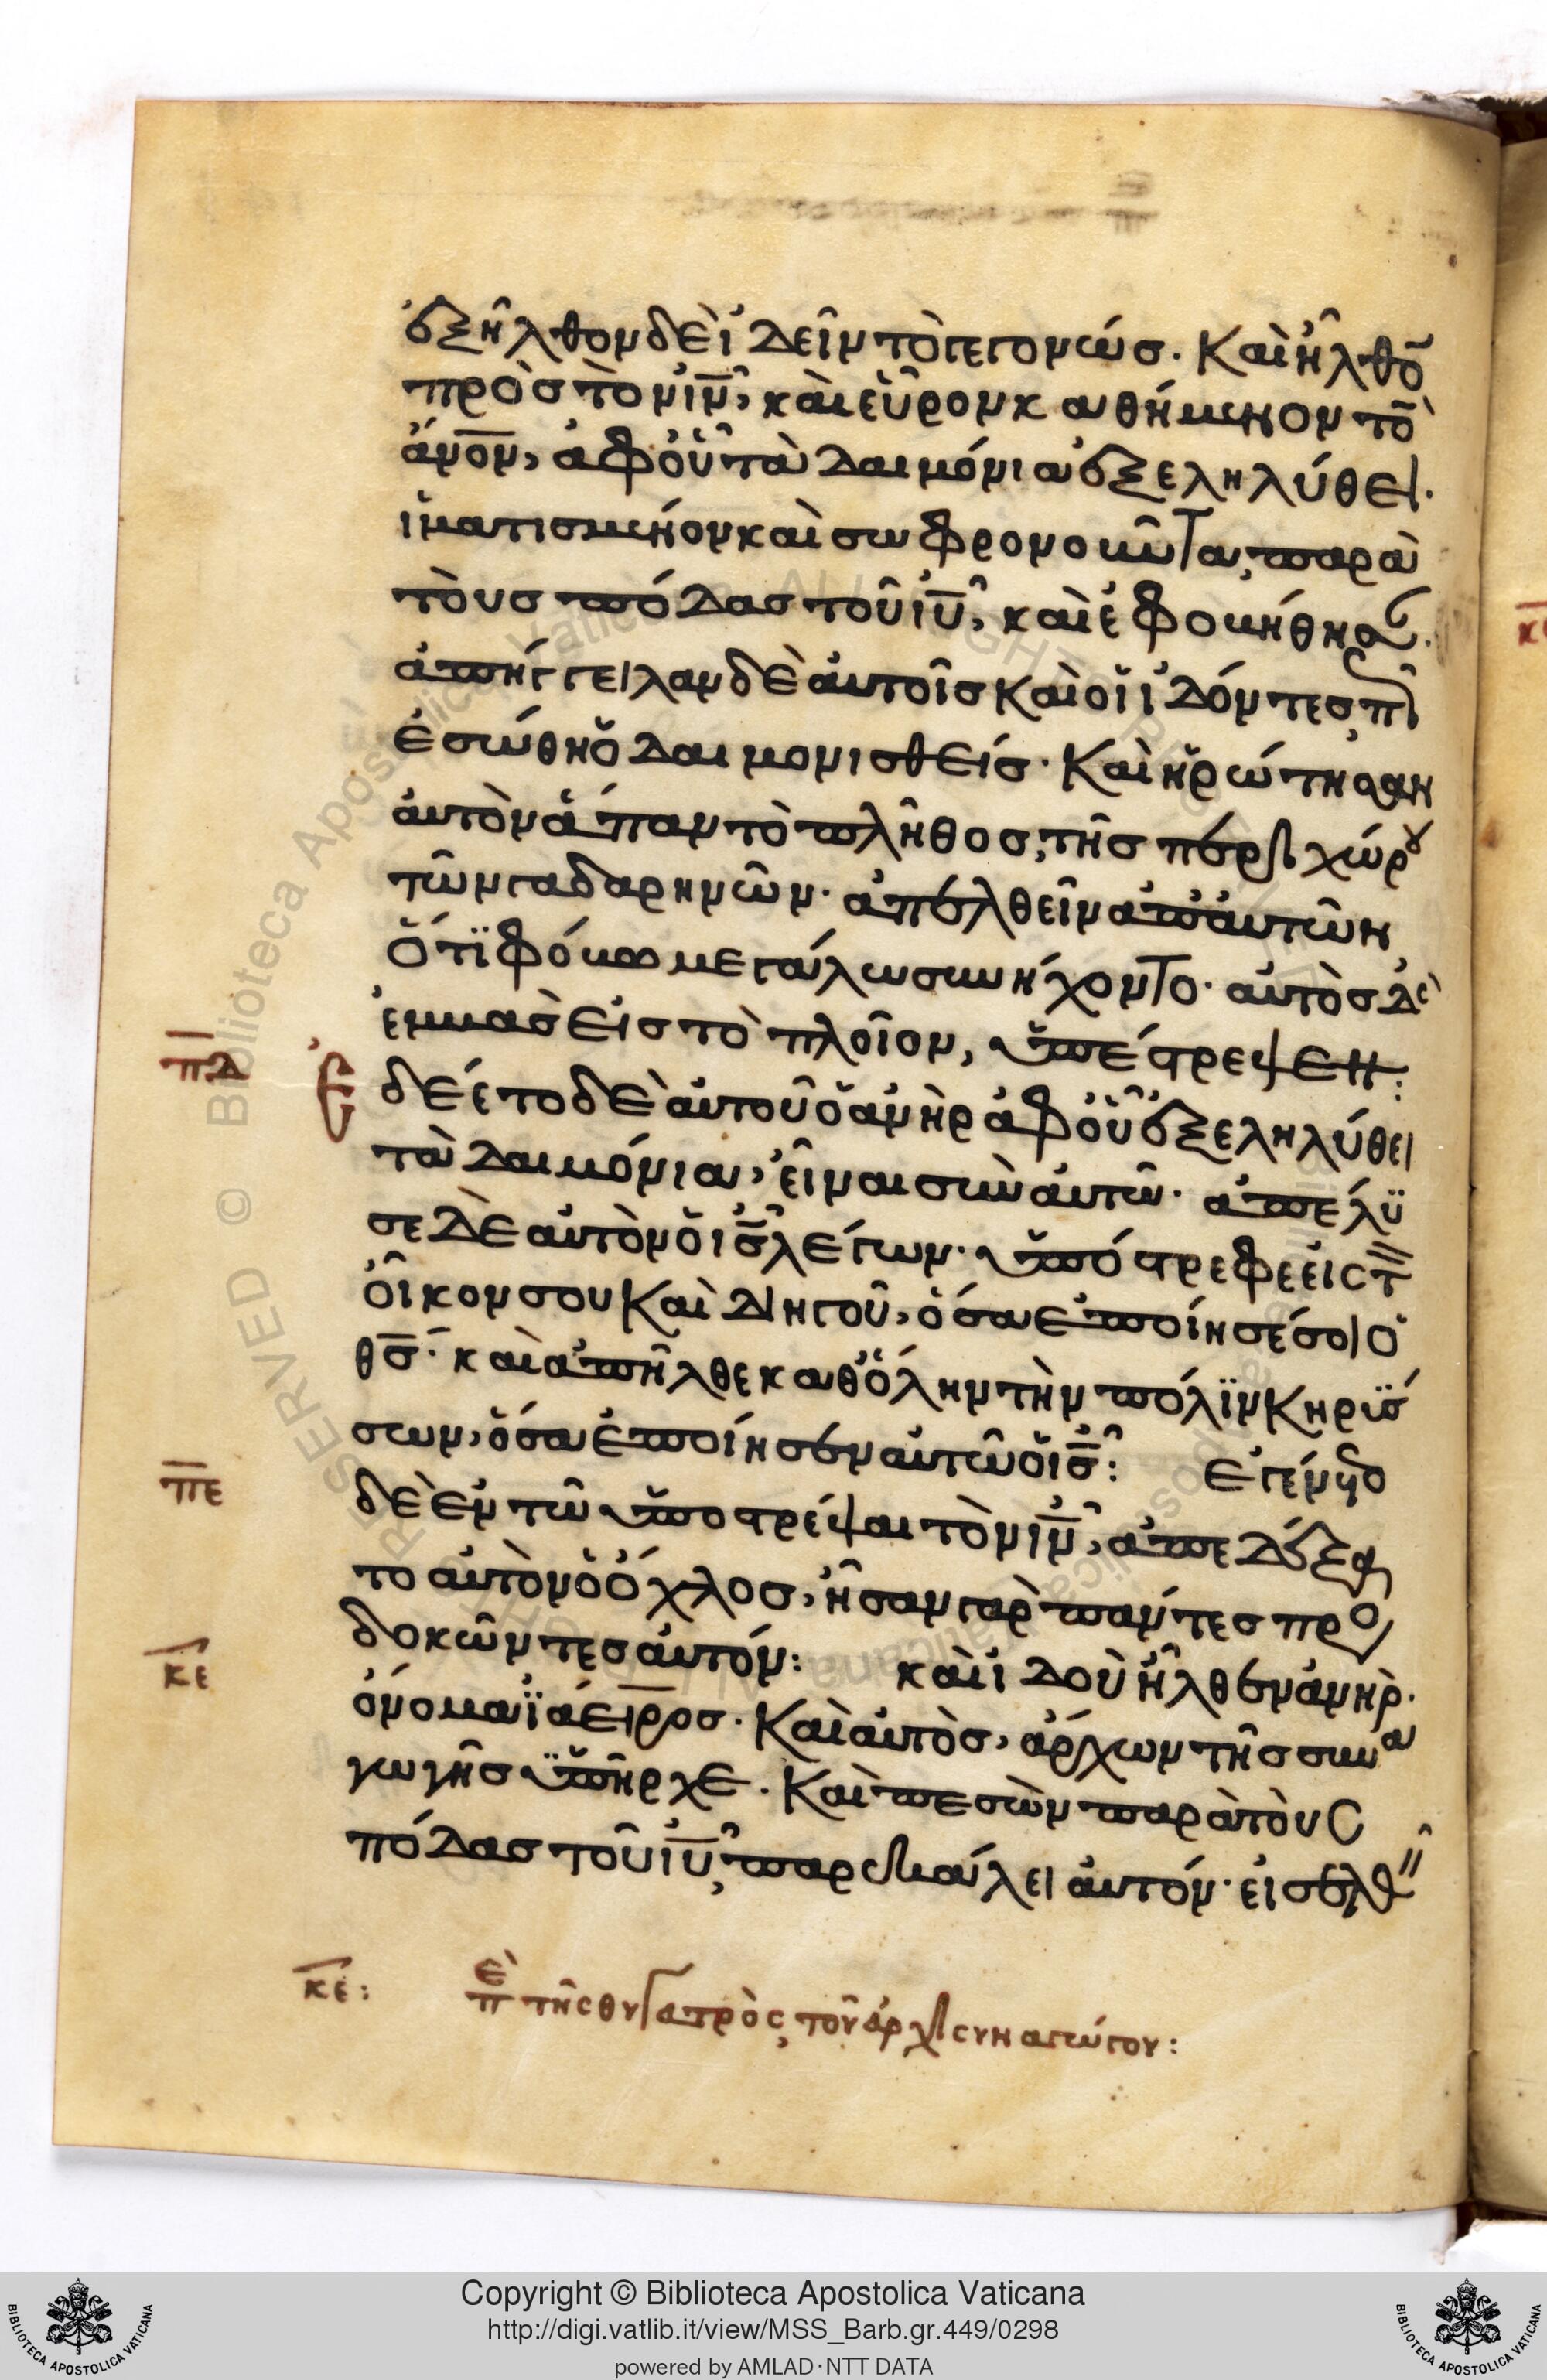 ἐξῆλθον δὲ ἰδεῖν τὸ γεγονώσ. Καὶ ἦλθο̄
πρὸσ τὸν ιν̄, καὶ εὗρον καθήμενον τὸ̄
ἄν̄ον, ἀφ οὗ τὰ δαιμόνια ἐξεληλύθει.
ἱματισμένον καὶ σωφρονοῦντα, παρὰ
τοὺσ πόδασ τοῦ ιῡ, καὶ ἐφοβήθησαν.
ἀπήγγειλαν δὲ αὐτοῖσ καὶ οἱ ἰδόντες, πῶ
ἐσώθη ὁ δαιμονισθείσ. Καὶ ἠρώτησαν
αὐτὸν ἅπαν τὸ πλῆθοσ, τῆσ περιχώρου
τῶν γαδαρηνῶν. ἀπελθεῖν ἀπ αὐτῶν
ὅτϊ φόβω μεγάλω συνήχοντο. αὐτὸσ δὲ
ἐμβὰσ εἰσ τὸ πλοῖον, ὑπέστρεψεν:
πδ Ἐδέετο δὲ αὐτοῦ ὁ ἀνὴρ ἀφ οὗ ἐξεληλύθει
τὰ δαιμόνια, εἶναι σὺν αὐτῶ. ἀπέλϋ
σε δὲ αὐτὸν ὁ ισ̄ λέγων. ὑπόστρεφε εἰς τ̄
οἶκον σου Καὶ διηγοῦ, ὅσα ἐποίησέ σοι ὁ
θσ̄. καὶ ἀπῆλθε καθ ὅλην τὴν πόλϊν Κηρϋσ
σων, ὅσα ἐποίησεν αὐτῶ ὁ ισ̄: ἐγένετο
πε δὲ ἐν τῶ ὑποστρέψαι τὸν ιν̄, ἀπεδέξα
το αὐτὸν ὁ ὄχλοσ, ἦσαν γὰρ πάντεσ προσ
κε δοκῶντεσ αὐτόν: καὶ ἰδοὺ ἦλθεν ἀνὴρ.
ὄνομα ϊάειροσ. Καὶ αὐτὸσ, ἄρχων τῆσ συνα
γωγῆσ ὑπῆρχε. Καὶ πεσὼν παρὰ τοὺς
πόδασ τοῦ ιῡ, παρεκάλει αὐτόν. εἰσελθεῖν
κε: πὲ τῆς θυγατρὸς, τοῦ ἀρχισυναγώγου:
Copyright © Biblioteca Apostolica Vaticana
http://digi.vatlib.it/view/MSS_Barb.gr.449/0298
powered by AMLAD·NTT DATA
BIBLIOTECA APOSTOLICA VATICANA
BIBLIOTECA APOSTOLICA VATICANA